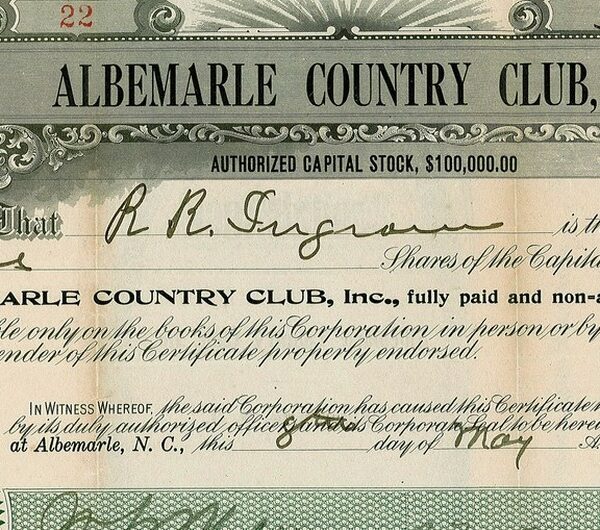 22
ALBEMARLE COUNTRY CLUB,
AUTHORIZED CAPITAL STOCK, $100,000.00
That R R. Ingram is th
Shares of the Capita
ARLE COUNTRY CLUB, Inc., fully paid and non-a
ble only on the books of this Corporation in person or by
ender of this Certificate properly endorsed.
IN WITNESS WHEREOF, the said Corporation has caused this Certificate
by its duly authorized officers and its Corporate Seal to be herei
at Albemarle, N. C., this 8th day of May A.